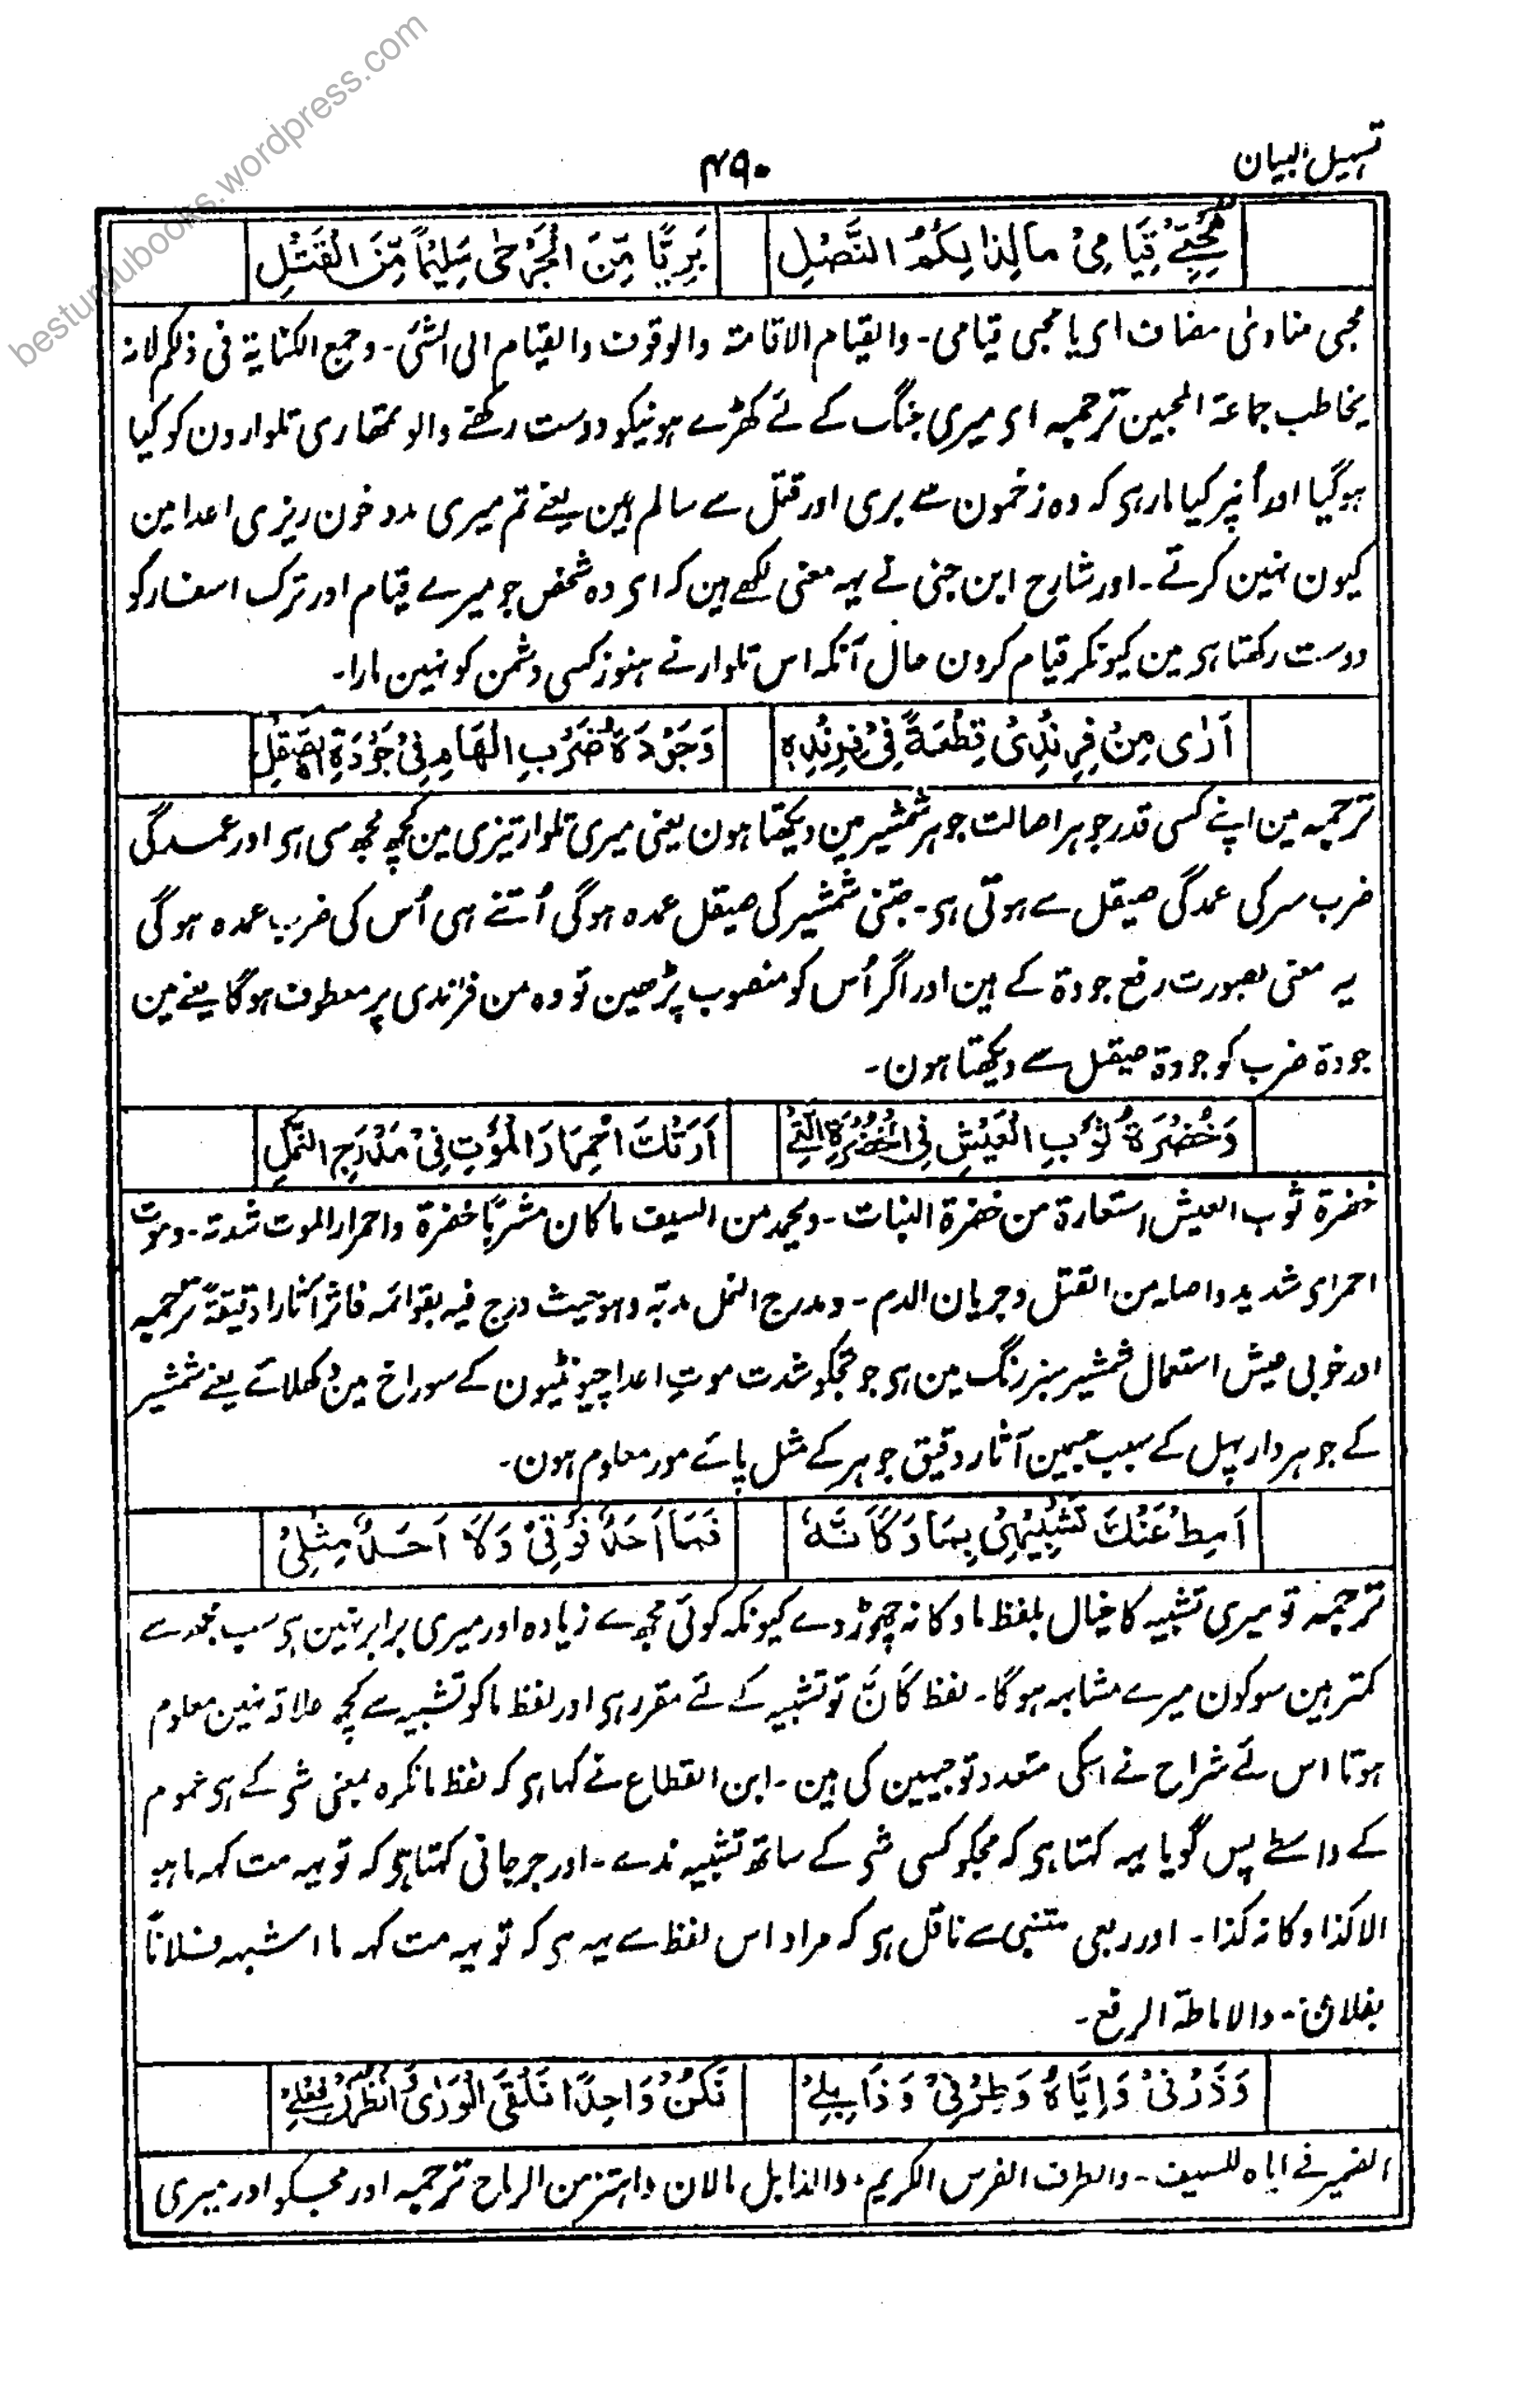 besturdubooks.wordpress.com
تسہیل البیان
۴۹۰
مُحِبِّيْ قِيَامِيْ مَا لِذٰلِكُمُ النَّصْلِ
بَرِيًّا مِّنَ الْجَرْحٰى سَلِيْمًا مِّنَ الْقَتْلِ
محبی منادیٰ مضاف ای یا محبی قیامی۔ والقیام الاقامۃ والوقوف والقیام الی الشئ۔ وجمع الکنایۃ فی ذلکم لانہ
یخاطب جماعۃ المحبین ترجمہ ای میری جنگ کے لئے کھڑے ہونیکو دوست رکھنے والو تمھاری تلوارون کو کیا
ہوگیا اور اُنپر کیا مار ہی کہ وہ زخمون سے بری اور قتل سے سالم ہین یعنے تم میری مدد خون ریزی اعدا مین
کیون نہین کرتے۔ اور شارح ابن جنی نے یہہ معنی لکھے ہین کہ ای وہ شخص جو میرے قیام اور ترک اسفار کو
دوست رکھتا ہی مین کیونکر قیام کرون حال آنکہ اس تلوار نے ہنوز کسی دشمن کو نہین مارا۔
اَرٰى مِنْ فِرِنْدِيْ قِطْعَةً فِيْ فِرِنْدِهٖ
وَجَوْدَةُ ضَرْبِ الْهَامِ فِيْ جَوْدَةِ الصَّقْلِ
ترجمہ مین اپنے کسی قدر جوہر اصالت جوہر شمشیر مین دیکھتا ہون یعنی میری تلوار تیزی مین کچھ مجھ سی ہی اور عمدگی
ضرب سر کی عمدگی صیقل سے ہوتی ہی۔ جتنی شمشیر کی صیقل عمدہ ہوگی اُتنے ہی اُس کی ضرب عمدہ ہوگی
یہ معنی بصورت رفع جودۃ کے ہین اور اگر اُس کو منصوب پڑھین تو وہ من فرندی پر معطوف ہوگا یعنے مین
جودۃ ضرب کو جودۃ صیقل سے دیکھتا ہون۔
وَخُضْرَةُ ثَوْبِ الْعَيْشِ فِي الْخُضْرَةِ الَّتِيْ
اَرَتْكَ احْمِرَارَ الْمَوْتِ فِيْ مَدْرَجِ النَّمْلِ
خضرۃ ثوب العیش استعارۃ من خضرۃ النبات۔ ویحمد من السیف ما کان مشربًا خضرۃ واحمرار الموت شدتہ۔ وموت
احمر ای شدید واصلہ من القتل وجریان الدم۔ ومدرج النمل مدبہ وہو حیث درج فیہ بقوائمہ فاثر آثارا دقیقۃً ترجمہ
اور خوبی عیش استعمال شمشیر سبز رنگ مین ہی جو تجکو شدت موتِ اعدا چیونٹیون کے سوراخ مین دکھلائے یعنے شمشیر
کے جوہر دار پہل کے سبب جسمین آثار دقیق جوہر کے مثل پائے مور معلوم ہون۔
اَمِطْ عَنْكَ تَشْبِيْهِيْ بِمَا وَكَاَنَّهٗ
فَمَا اَحَدٌ فَوْقِيْ وَلَا اَحَدٌ مِثْلِيْ
ترجمہ تو میری تشبیہ کا خیال بلفظ ما وکانہ چھوڑ دے کیونکہ کوئی مجھ سے زیادہ اور میری برابر نہین ہی سب مجھ سے
کمتر ہین سو کون میرے مشابہ ہوگا۔ لفظ کَاَنَّ تو تشبیہ کے لئے مقرر ہی اور لفظ ما کو تشبیہ سے کچھ علاقہ نہین معلوم
ہوتا اس لئے شراح نے اسکی متعدد توجیہین کی ہین۔ ابن القطاع نے کہا ہی کہ لفظ ما نکرہ بمعنی شی کے ہی عموم
کے واسطے پس گویا یہہ کہتا ہی کہ مجکو کسی شی کے ساتھ تشبیہ ندے۔ اور جرجانی کہتا ہی کہ تو یہہ مت کہہ ما ہو
الا کذا وکانہ کذا۔ اور ربعی متنبی سے ناقل ہی کہ مراد اس لفظ سے یہہ ہی کہ تو یہہ مت کہہ ما اشبہ فلاناً
بفلان۔ والاماطۃ الرفع۔
وَذَرْنِيْ وَاِيَّاهُ وَطِرْفِيْ وَذَابِلِيْ
نَكُنْ وَاحِدًا نَلْقَى الْوَرٰى وَانْظُرَنْ فِعْلِيْ
الضمیر فے ایاہ للسیف۔ والطرف الفرس الکریم۔ والذابل ما لان واہتز من الرماح ترجمہ اور مجکو اور میری